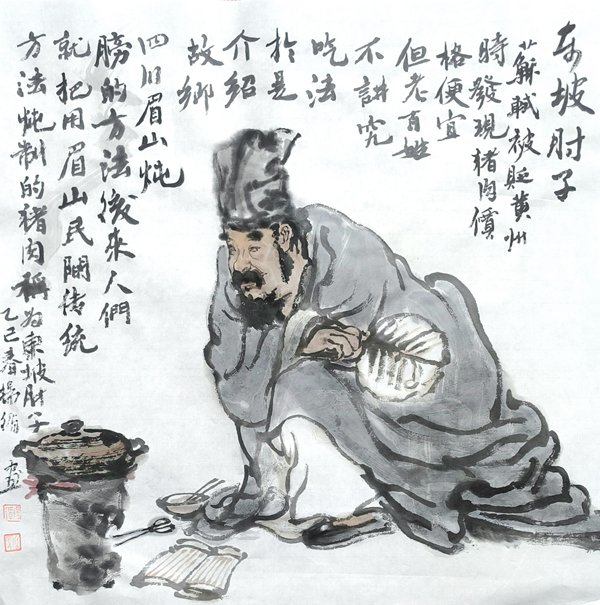 东坡肘子
蘇軾被貶黄州
時發現猪肉價
格便宜
但老百姓
不講究
吃法
於是
介紹
故鄉
四川眉山炖
膀的方法後來人們
就把用眉山民間传统
方法炖制的猪肉稱为東坡肘子
乙巳春楊
畫